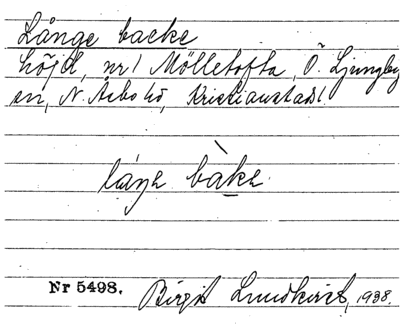 Långe backe
höjd, nr 1 Mölletofta, Ö. Ljungby
sn, N. Åsbo hd, Kristianstads l.
låŋe bàke
Nr 5498. Birgit Lundkvist, 1938.